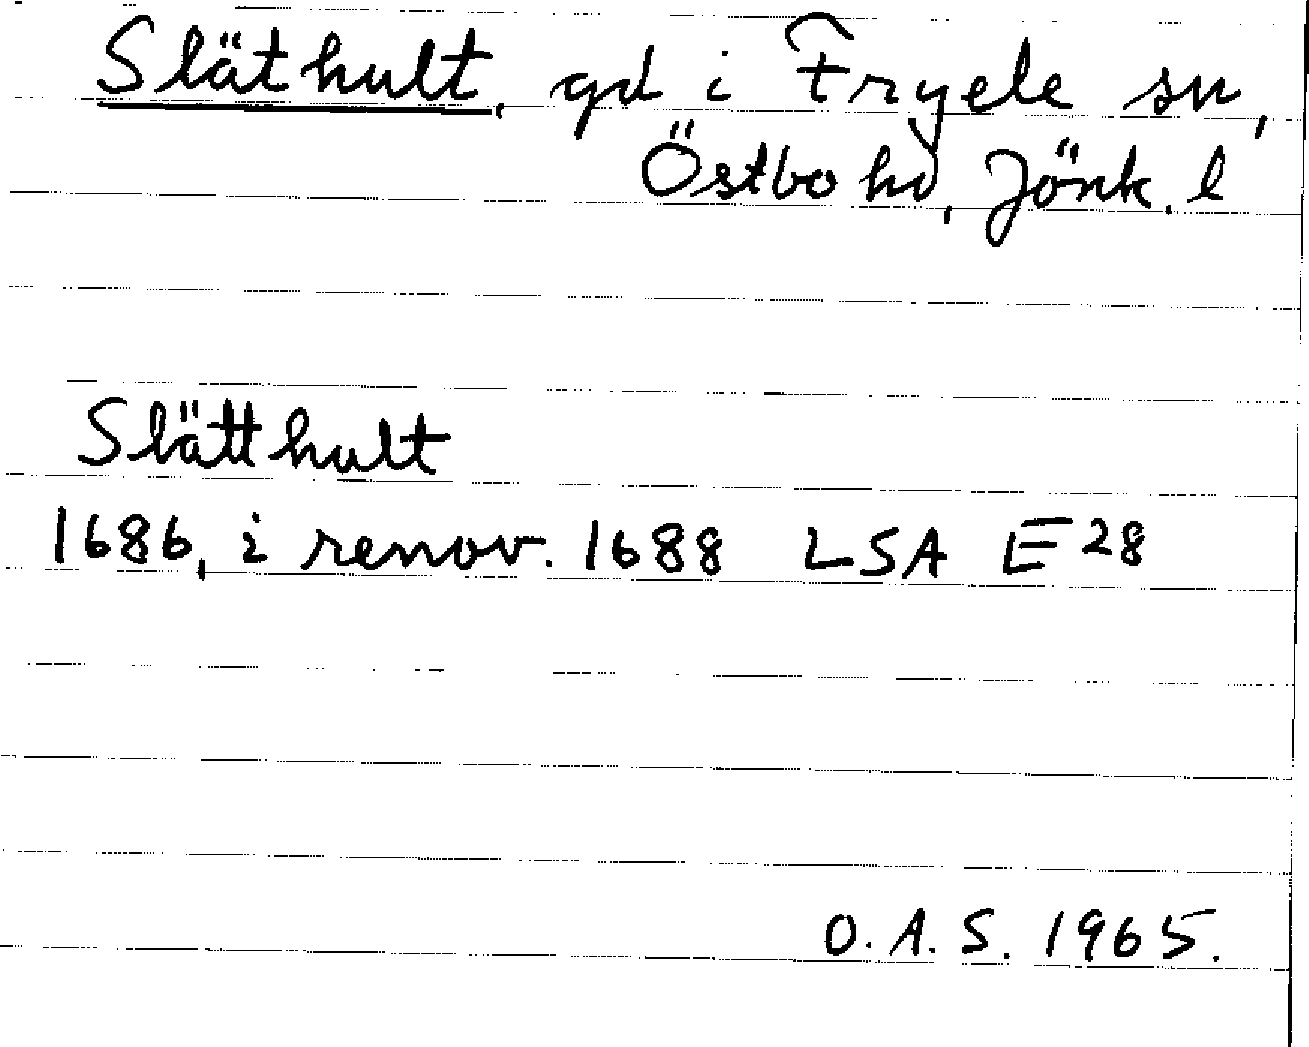 Släthult, gd i Fryele sn,
Östbo hd, Jönk. l
Slätthult
1686, i renov. 1688 LSA E 28
O. A. S. 1965.